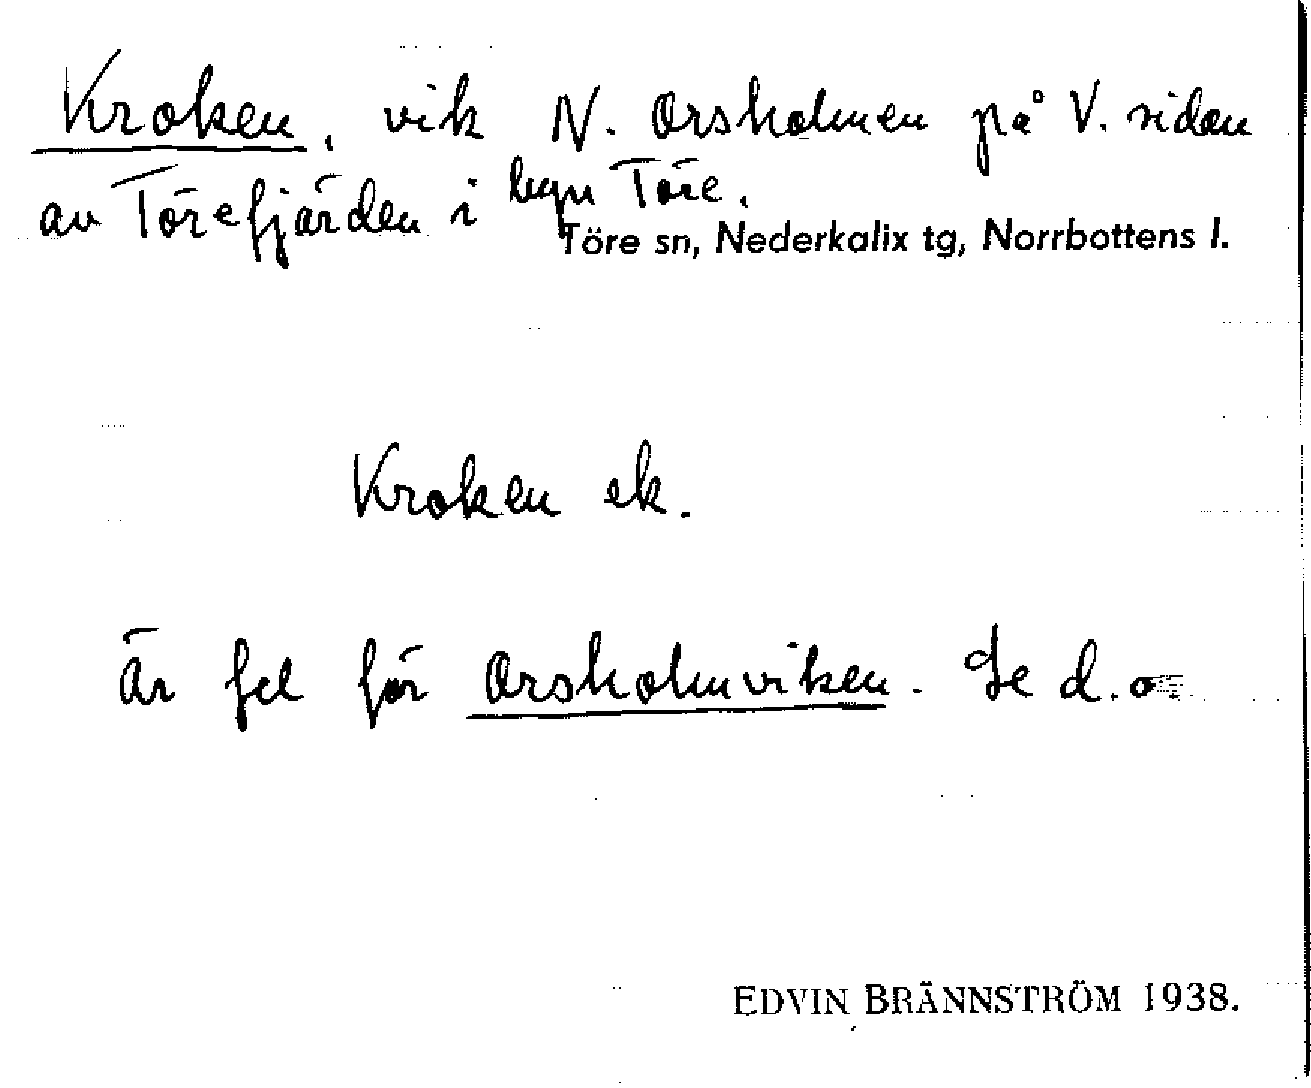 Kroken, vik N. Orsholmen på V. sidan
av Törefjärden i byn Töre.
Töre sn, Nederkalix tg, Norrbottens l.
Kroken ek.
är fel för Orsholmviken. Se d.o.
EDVIN BRÄNNSTRÖM 1938.